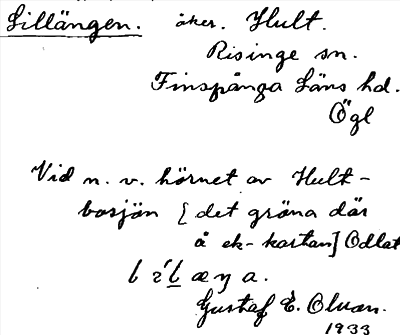 Lillängen. åker. Hult.
Risinge sn.
Finspånga Läns hd.
Ögl
Vid n. v. hörnet av Hult-
bosjön [det gröna där
å ek-kartan] Odlat
Gustaf E. Olsson.
1933